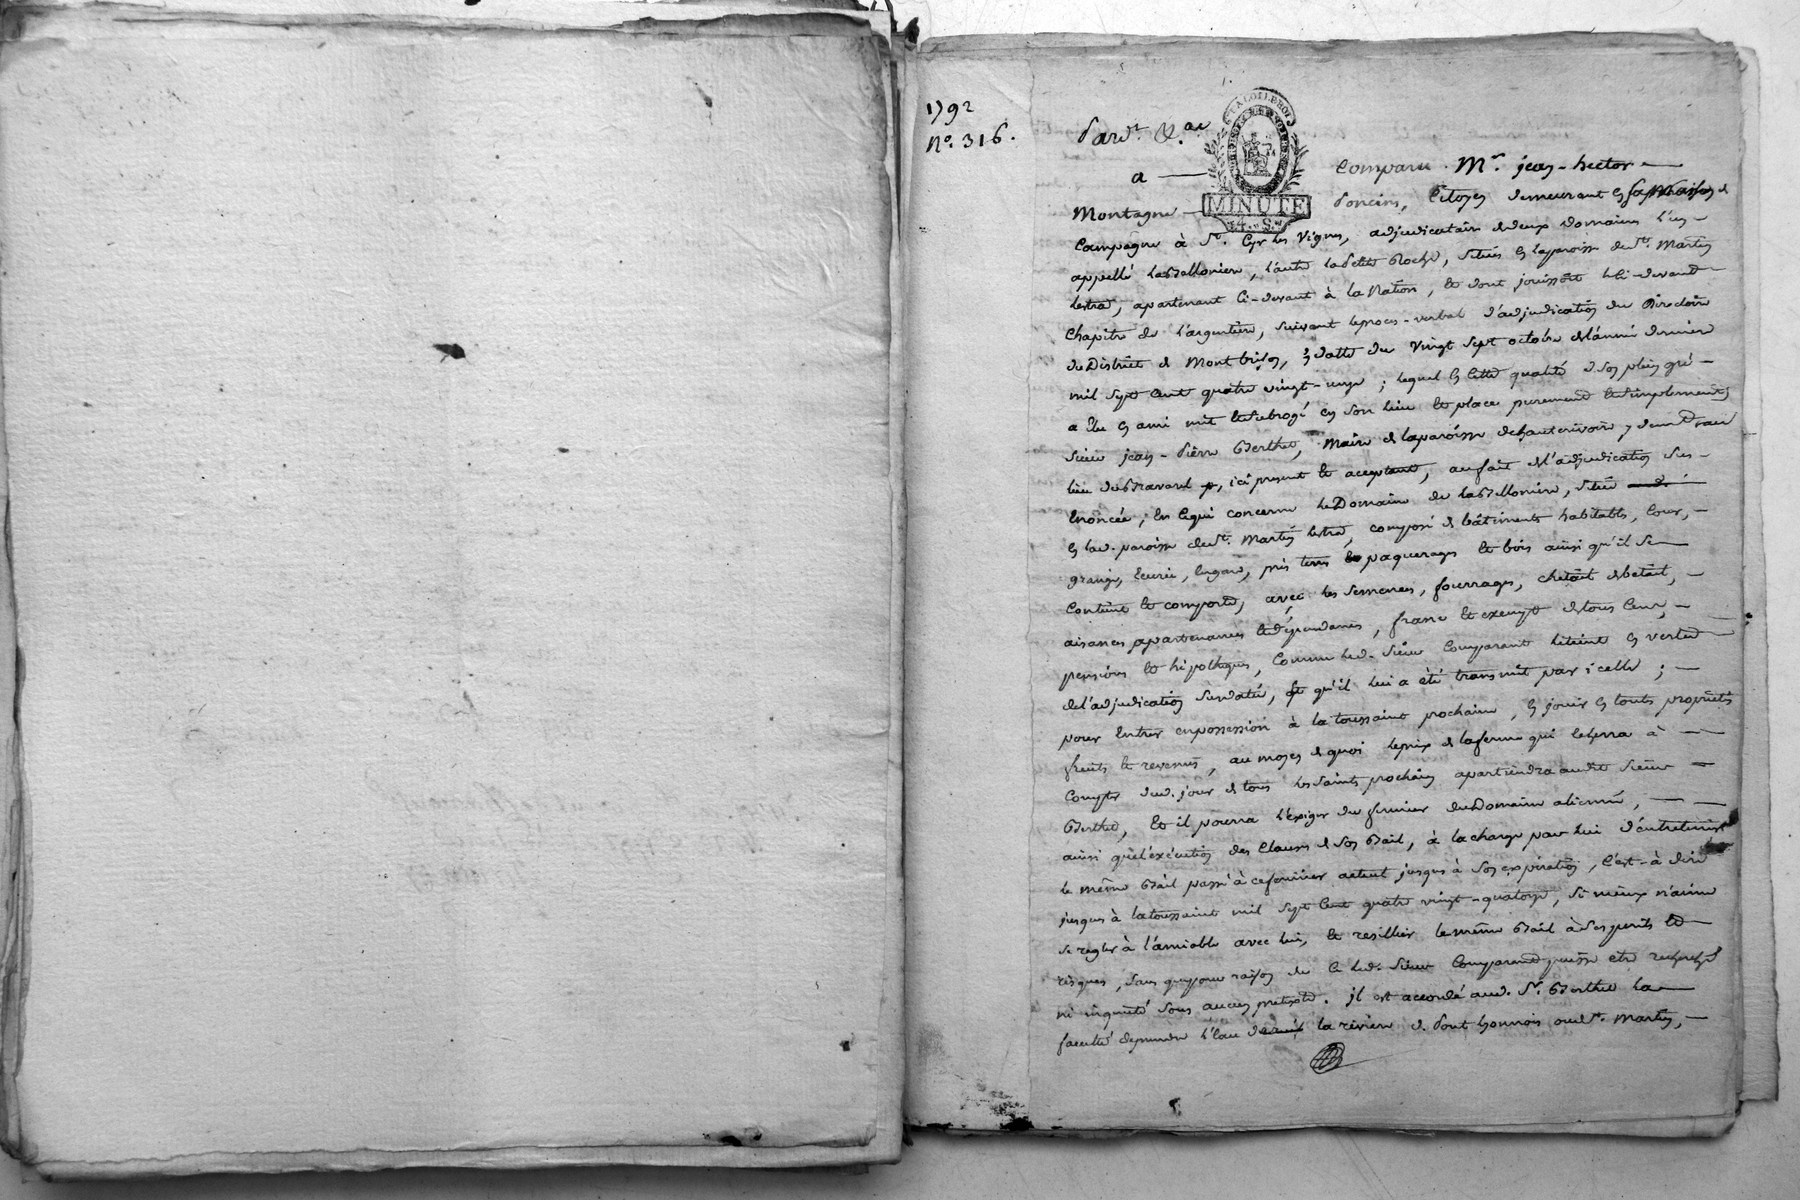 1792
N.° 316.
Pard.t &.a
LA LOI LE ROI
MINUTE
4. S.
a — Comparu M.r jean-hector —
Montagne — Poncins, Citoyen demeurant en sa Maison de
Campagne à S.t Cyr les Vignes, adjudicataire de deux Domaines l'un —
appellé la Vallonière, l'autre la Petite Roche, situés en la paroisse de S.t Martin
lestra, apartenant ci-devant à la Nation, et dont jouissoit le ci-devant
Chapitre de l'argentière, suivant le proces-verbal d'adjudication du Directoire
du District de Montbrison, en datte du vingt sept octobre de l'année derniere
mil sept cent quatre vingt-onze ; lequel en cette qualité de son plein gré —
a élu en ami mit et subrogé en son lieu et place purement et simplement
Sieur jean-Pierre Berthet, Maire de la paroisse de hauterivoire, y demeurant au
lieu du Travard, ici present et acceptant, au fait de l'adjudication sus —
énoncée, en ce qui concerne le Domaine de la Vallonière, situé —
en lad. paroisse de S.t Martin lestra, composé de bâtiments habitables, cour, —
grange, écurie, hugard, prés terres paquerages et bois ainsi qu'il se —
contient et comporte, avec les semences, fourrages, chetail de betail, —
aisances apartenances et dépendances, franc et exempt de tous cens, —
pensions et hipotheques, comme led. Sieur Comparant le tient en vertu —
de l'adjudication susdatée, et qu'il lui a été transmit par icelle ; —
pour entrer en possession à la toussaint prochaine, en jouir en toute propriété
fruits et revenus, au moyen de quoi le prix de la ferme qui écherra à —
compter dud. jour de tous les Saints prochain apartiendra audit Sieur —
Berthet, et il pourra l'exiger du fermier du Domaine aliené, —
ainsi que l'exécution des clauses de son Bail, à la charge par lui d'entretenir
le même Bail passé à ce fermier actuel jusques à son expiration, c'est-à dire
jusques à la toussaint mil sept cent quatre vingt-quatorze, si mieux n'aime
se regler à l'amiable avec lui, et resillier le même Bail à ses perils et —
risques, sans que pour raison de ce led. Sieur Comparant puisse etre recherché
ni inquieté sous aucun pretexte. il est accordé aud. S.r Berthet la —
faculté de prendre l'eau la rivière de Pont Lyonnois oud.t Martin, —